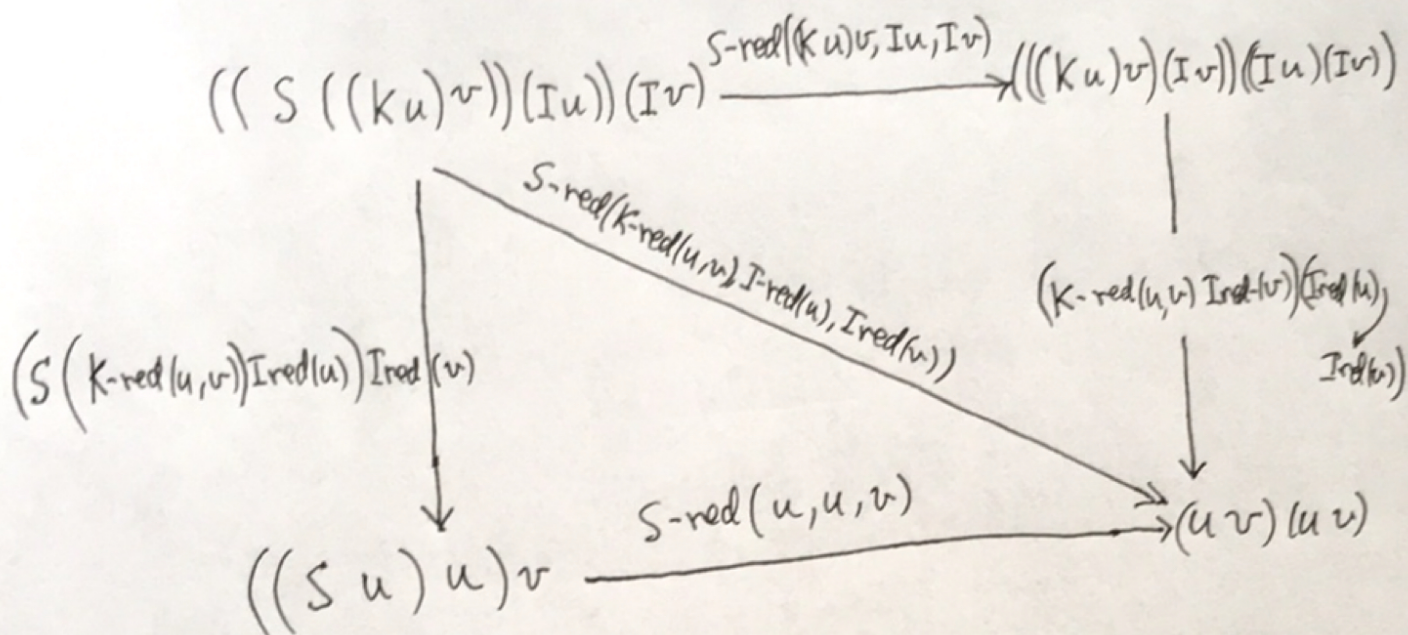 S-red((Ku)v, Iu, Iv)
((S((Ku)v))(Iu))(Iv)
(((Ku)v)(Iv))((Iu)(Iv))
S-red(K-red(u,v), I-red(u), Ired(v))
(K-red(u,v) Ired-(v))(Ired(u),
Ired(v))
(S(K-red(u,v))Ired(u))Ired(v)
S-red(u,u,v)
(uv)(uv)
((Su)u)v